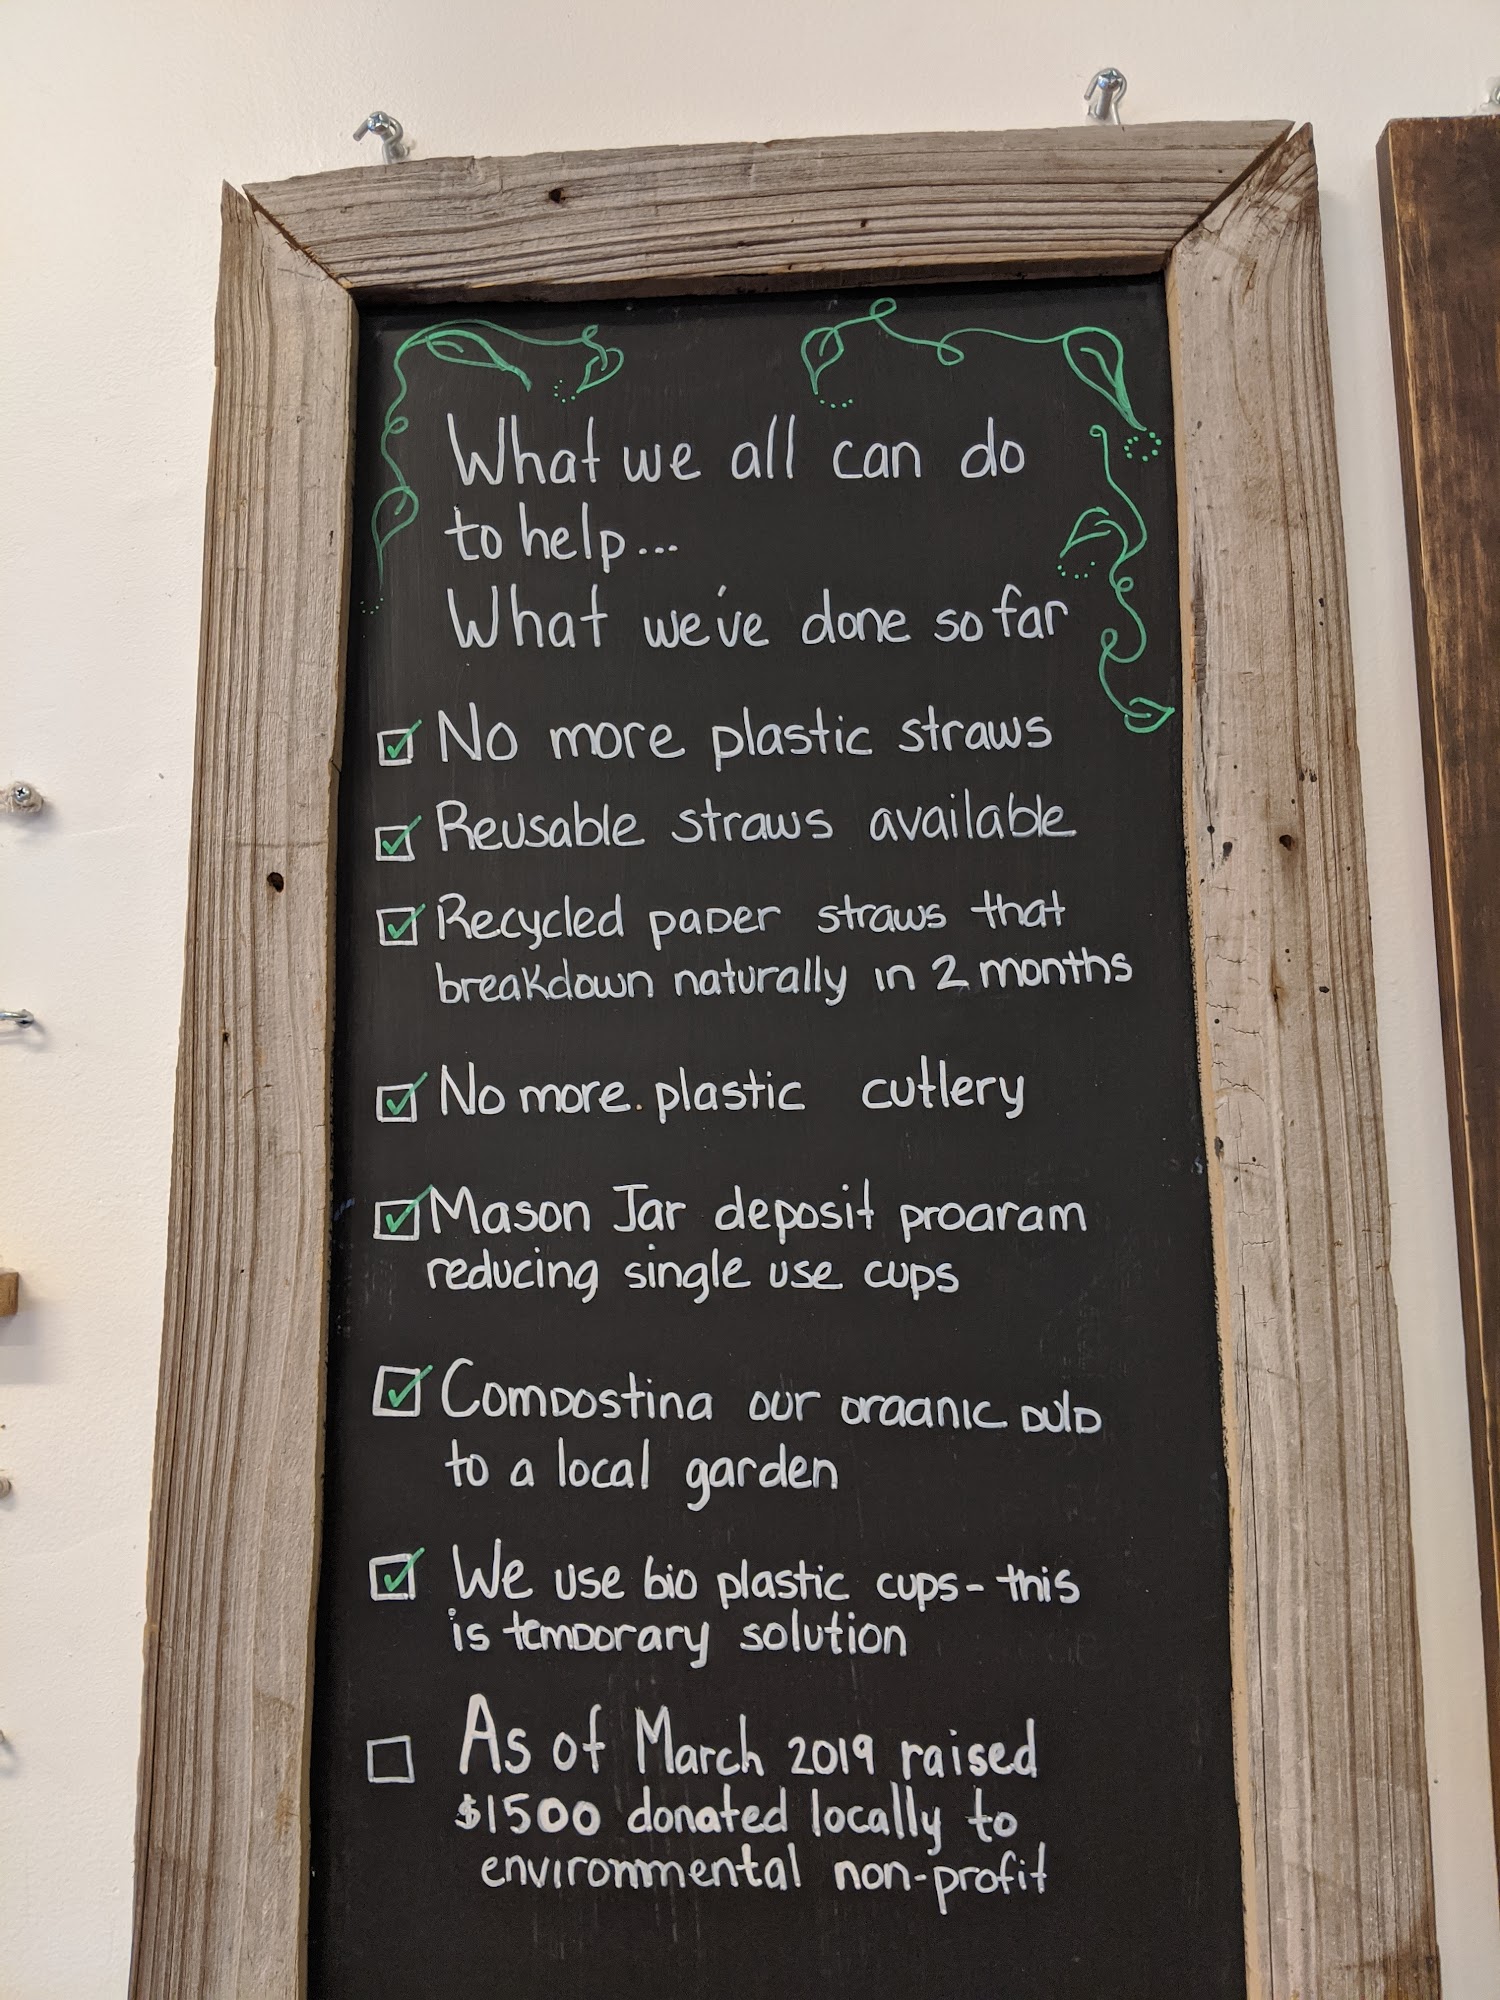 What we all can do
to help...
What we've done so far
No more plastic straws
Reusable straws available
Recycled paper straws that
breakdown naturally in 2 months
No more plastic cutlery
Mason Jar deposit program
reducing single use cups
Composting our organic pulp
to a local garden
We use bio plastic cups - this
is temporary solution
As of March 2019 raised
$1500 donated locally to
environmental non-profit